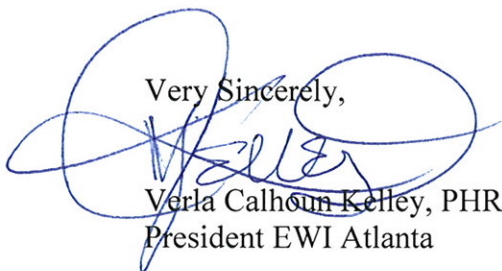 Very Sincerely,
VKelley
Verla Calhoun Kelley, PHR
President EWI Atlanta